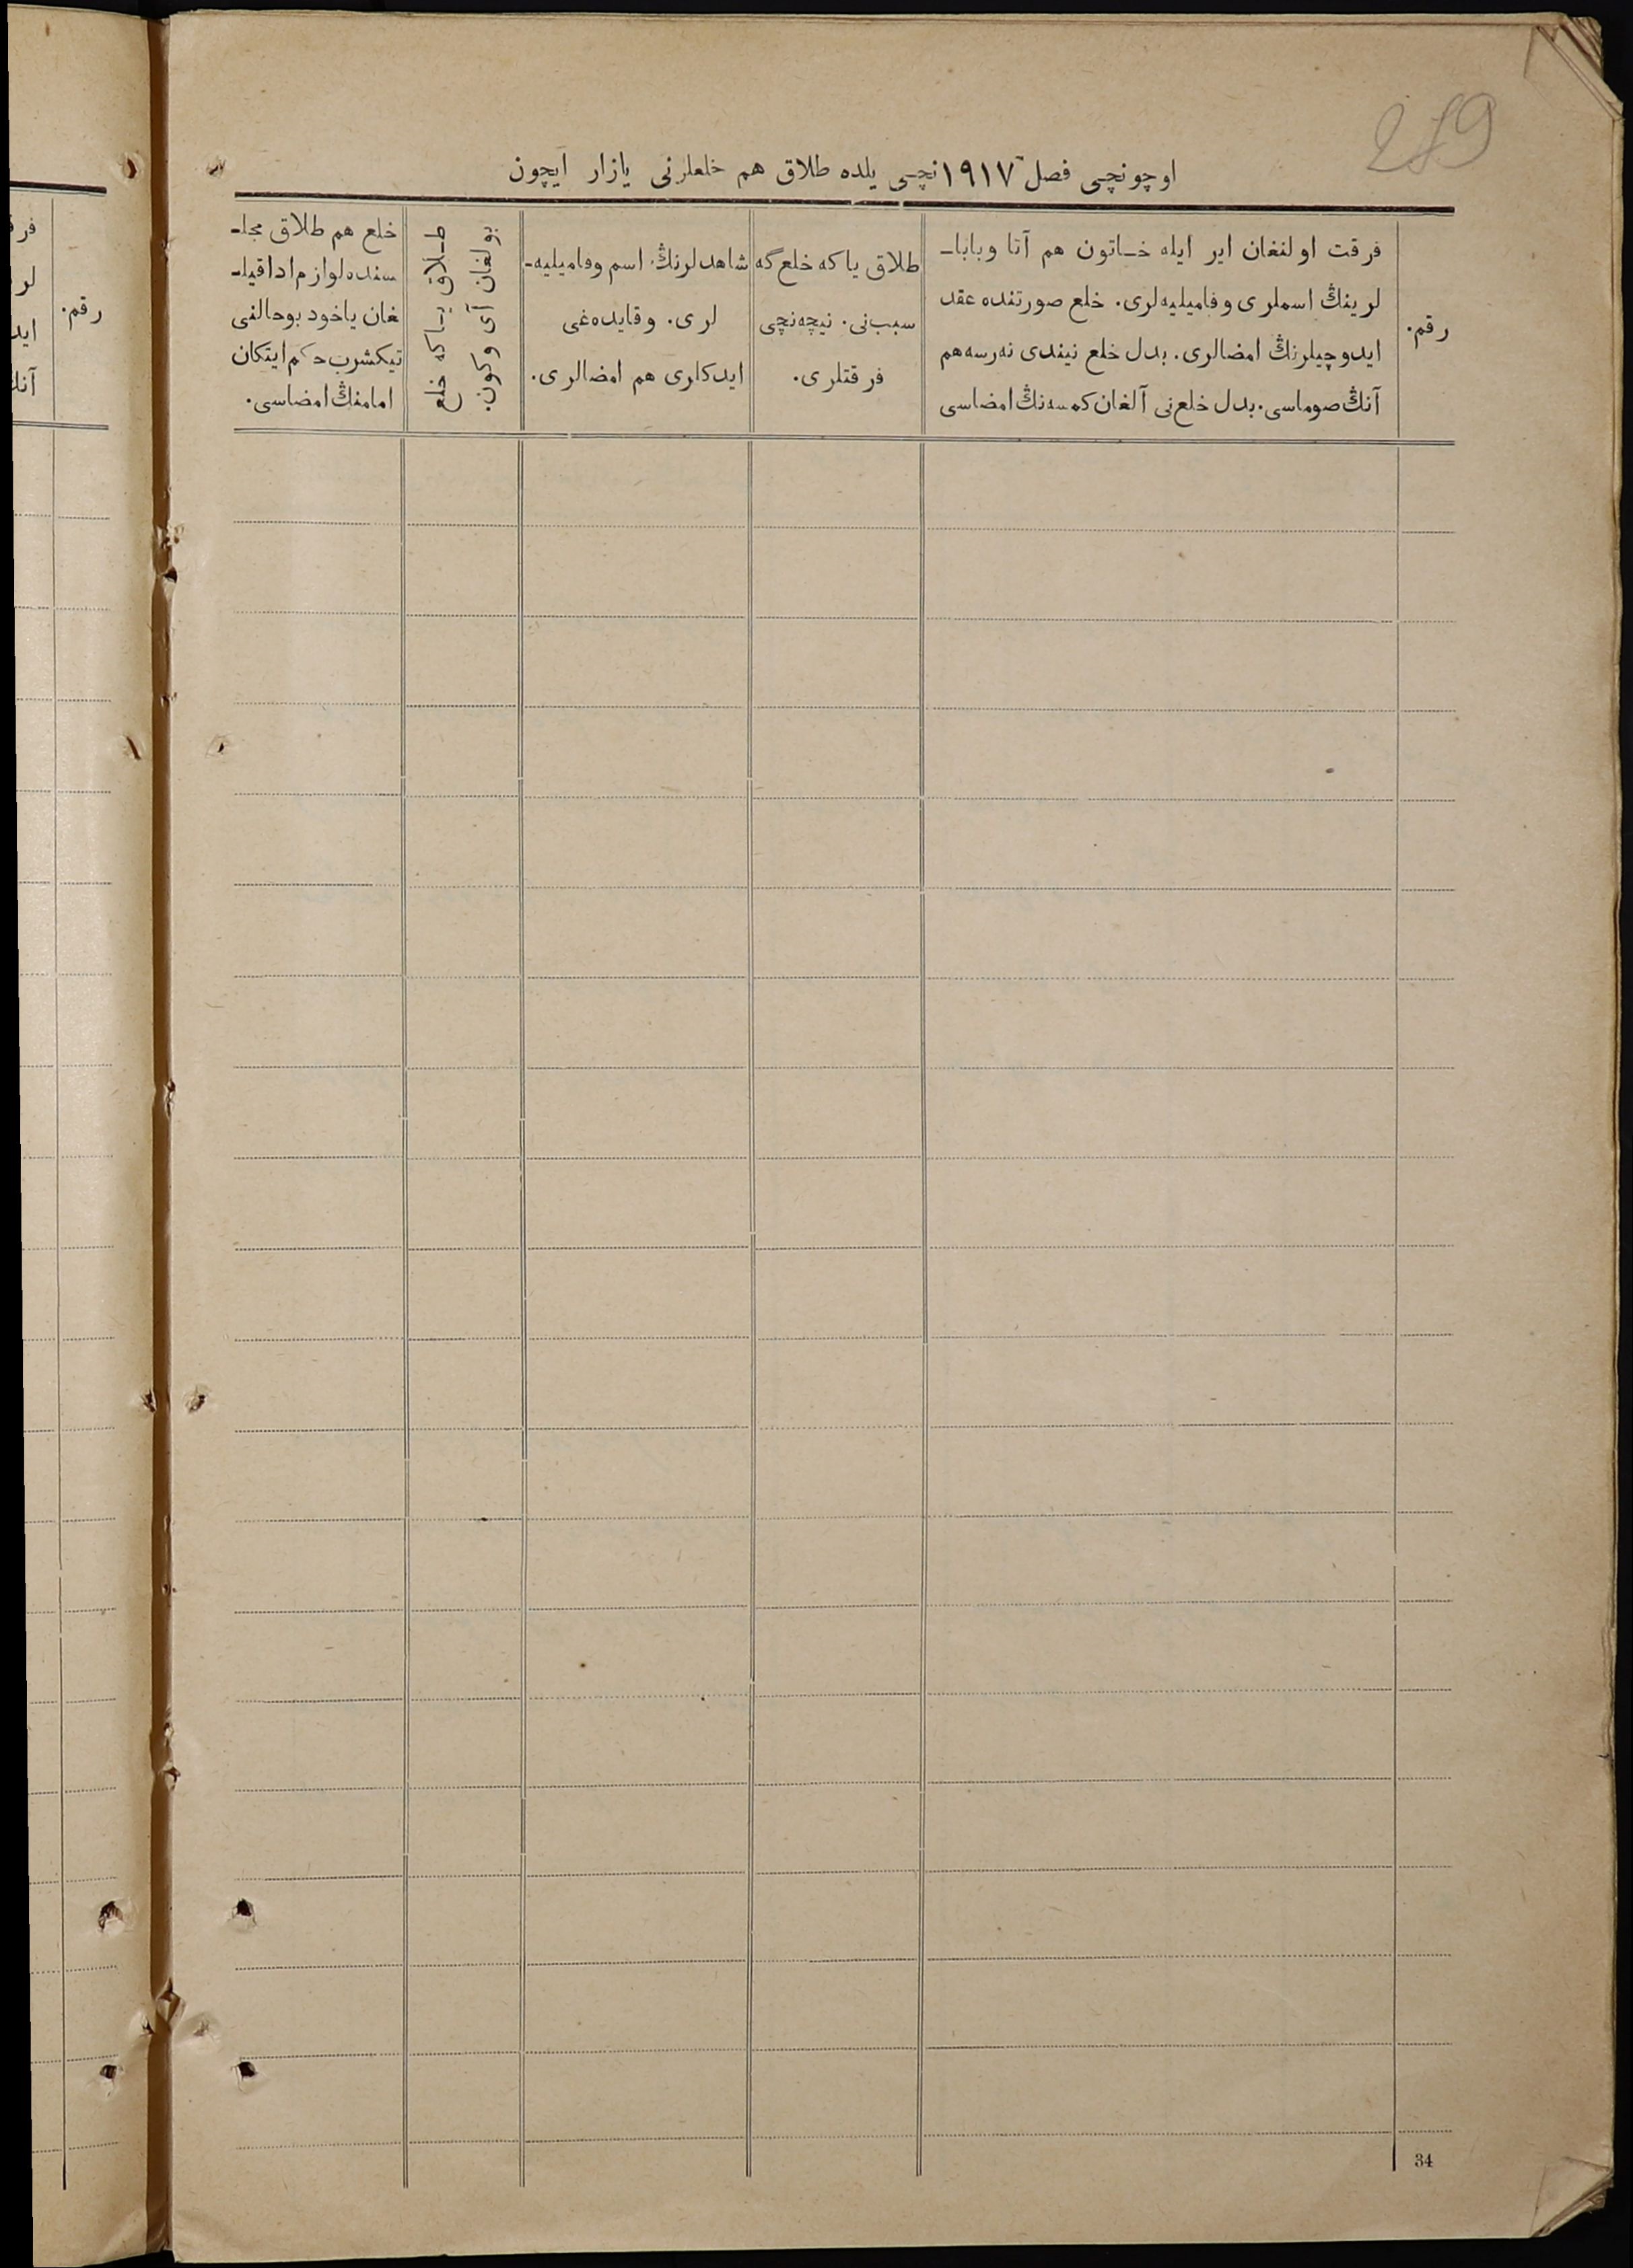 279
اوچونچی فصل ۱۹۱۷ نچی یلده طلاق هم خلعلرنی یازار ایچون
رقم.
فرقت اولنغان ایر ایله خاتون هم آتا وبابا-
لرینڭ اسملری وفامیلیه‌لری. خلع صورتنده عقد
ایدوچیلرنڭ امضالری. بدل خلع نیندی نه‌رسه هم
آنڭ صوماسی. بدل خلع‌نی آلغان کمسه‌نڭ امضاسی
طلاق یاکه خلع‌گه
سبب‌نی. نیچه‌نچی
فرقتلری.
شاهدلرنڭ اسم وفامیلیه-
لری. وقایده‌غی
ایدکلری هم امضالری.
طلاق یاکه خلع
بولغان آی وکون.
خلع هم طلاق مجلـ
سنده لوازم ادا قیلـ
غان یاخود بوحالنی
تیکشرب حکم ایتکان
امامنڭ امضاسی.
رقم.
فرق
لر
اید
آنڭ
34